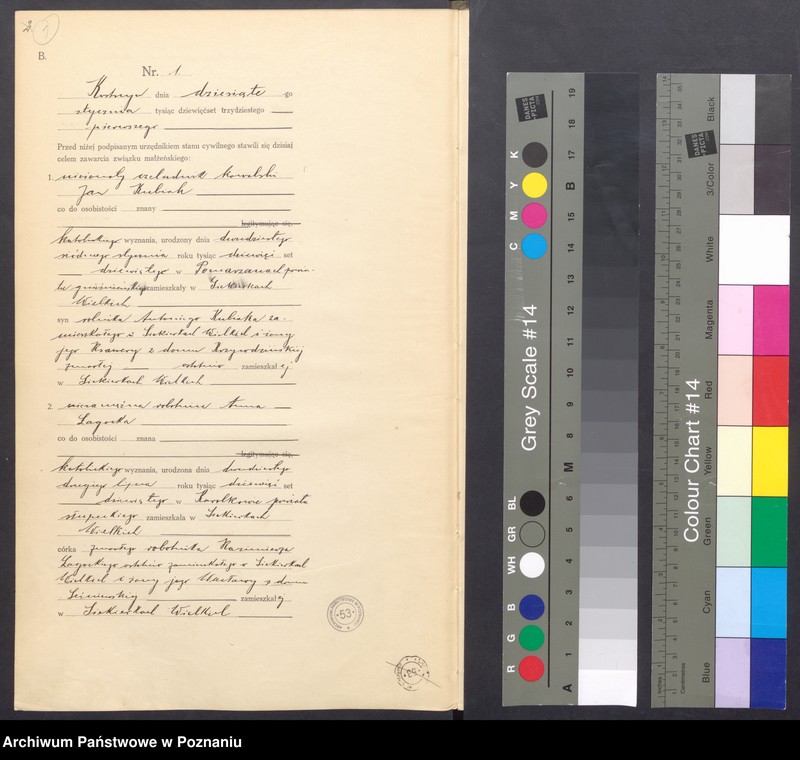 2.
1
B.
Nr. 1
Kostrzyn dnia dziesiąte go
stycznia tysiąc dziewięćset trzydziestego
pierwszego
Przed niżej podpisanym urzędnikiem stanu cywilnego stawili się dzisiaj
celem zawarcia związku małżeńskiego:
1. nieżonaty czeladnik kowalski
Jan Kubiak
co do osobistości znany
legitymując się,
katolickiego wyznania, urodzony dnia dwudziestego
siódmego stycznia roku tysiąc dziewięć set
dziewiątego w Pomarzanach powia-
tu gnieźnieńskiego zamieszkały w Siekierkach
Wielkich
syn rolnika Antoniego Kubiaka za-
mieszkałego w Siekierkach Wielkich i żony
jego Ksawery z domu
zmarłej ostatnio zamieszkał ej
w Siekierkach Wielkich
2. niezamężna robotnica Anna
Łagocka
co do osobistości znana
legitymując się,
katolickiego wyznania, urodzona dnia dwudziestego
drugiego lipca roku tysiąc dziewięć set
dziewiątego w Karolkowie powiatu
słupeckiego zamieszkała w Siekierkach
Wielkich
córka zmarłego robotnika Kazimierza
Łagockiego ostatnio zamieszkałego w Siekierkach
Wielkich i żony jego z domu
zamieszkał ej
w Siekierkach Wielkich
53
DANES
-PICTA
.COM
Grey Scale #14
R G B WH GR BL C M Y K
A 1 2 3 4 5 6 M 8 9 10 11 12 13 14 15 B 17 18 19
DANES
-PICTA
.COM
Colour Chart #14
Blue Cyan Green Yellow Red Magenta White 3/Color Black
Inches
Centimetres
Archiwum Państwowe w Poznaniu